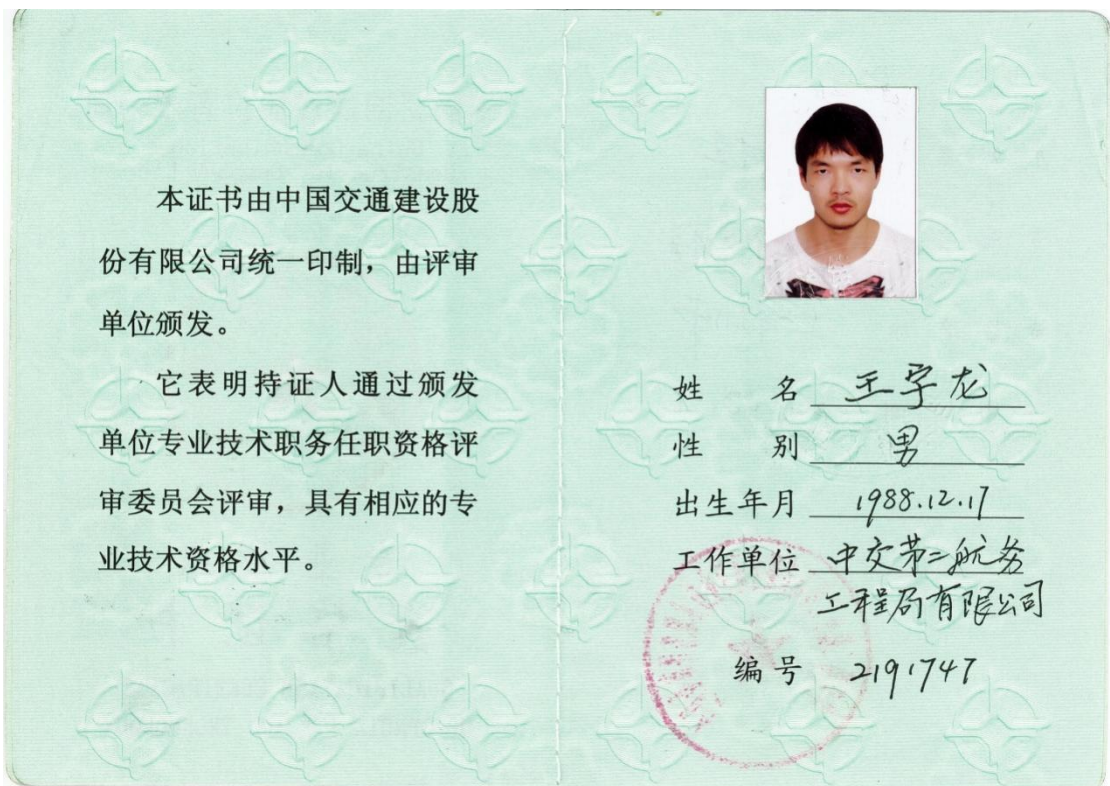 本证书由中国交通建设股
份有限公司统一印制，由评审
单位颁发。
它表明持证人通过颁发
单位专业技术职务任职资格评
审委员会评审，具有相应的专
业技术资格水平。
姓 名 王宇龙
性 别 男
出生年月 1988.12.17
工作单位 中交第二航务
工程局有限公司
编号 2191747